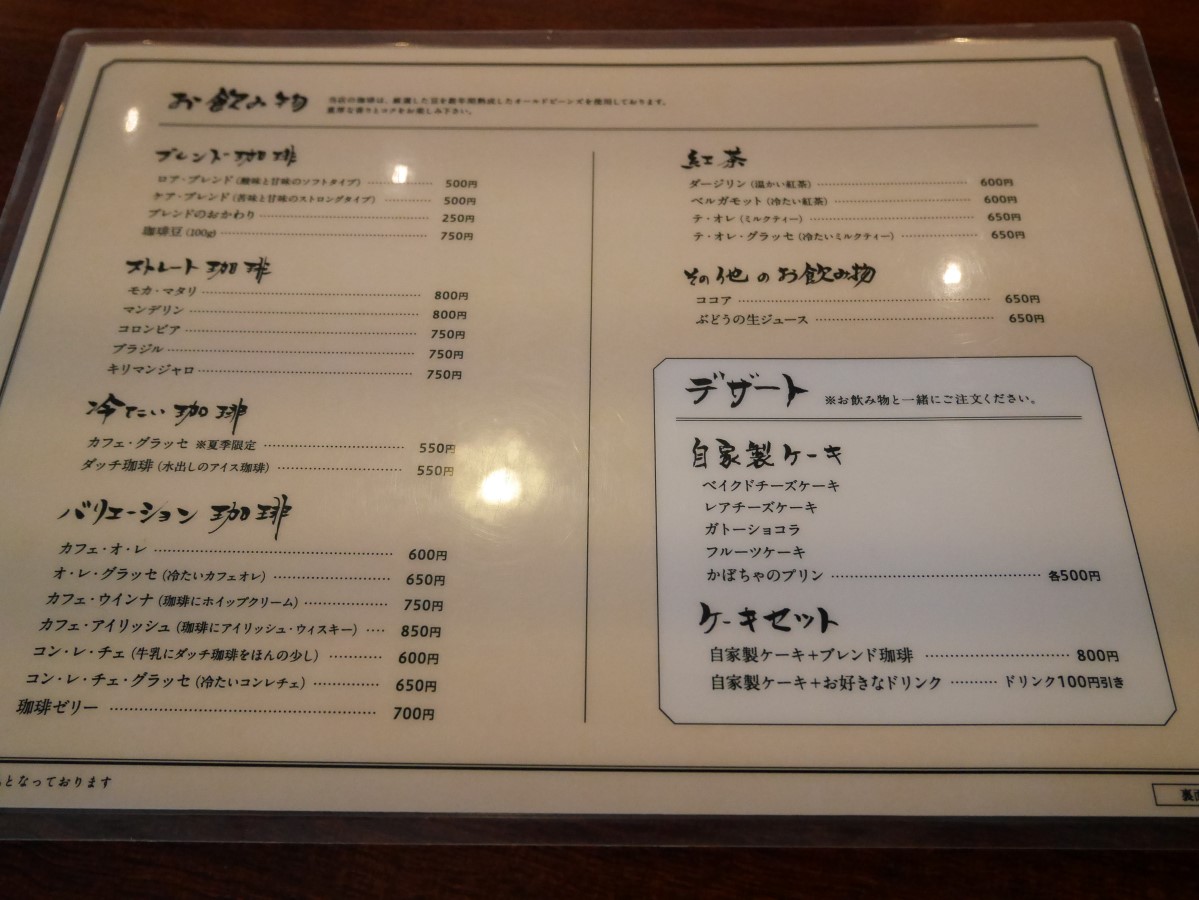 お飲み物
当店の珈琲は、厳選した豆を数年間熟成したオールドビーンズを使用しております。
重厚な香りとコクをお楽しみ下さい。
ブレンド珈琲
ロア・ブレンド（酸味と甘味のソフトタイプ） 500円
ケア・ブレンド（苦味と甘味のストロングタイプ） 500円
ブレンドのおかわり 250円
珈琲豆（100g） 750円
ストレート珈琲
モカ・マタリ 800円
マンデリン 800円
コロンビア 750円
ブラジル 750円
キリマンジャロ 750円
冷たい珈琲
カフェ・グラッセ ※夏季限定 550円
ダッチ珈琲（水出しのアイス珈琲） 550円
バリエーション珈琲
カフェ・オ・レ 600円
オ・レ・グラッセ（冷たいカフェオレ） 650円
カフェ・ウインナ（珈琲にホイップクリーム） 750円
カフェ・アイリッシュ（珈琲にアイリッシュ・ウィスキー） 850円
コン・レ・チェ（牛乳にダッチ珈琲をほんの少し） 600円
コン・レ・チェ・グラッセ（冷たいコンレチェ） 650円
珈琲ゼリー 700円
紅茶
ダージリン（温かい紅茶） 600円
ベルガモット（冷たい紅茶） 600円
テ・オレ（ミルクティー） 650円
テ・オレ・グラッセ（冷たいミルクティー） 650円
その他のお飲み物
ココア 650円
ぶどうの生ジュース 650円
デザート ※お飲み物と一緒にご注文ください。
自家製ケーキ
ベイクドチーズケーキ
レアチーズケーキ
ガトーショコラ
フルーツケーキ
かぼちゃのプリン 各500円
ケーキセット
自家製ケーキ＋ブレンド珈琲 800円
自家製ケーキ＋お好きなドリンク ドリンク100円引き
となっております
裏